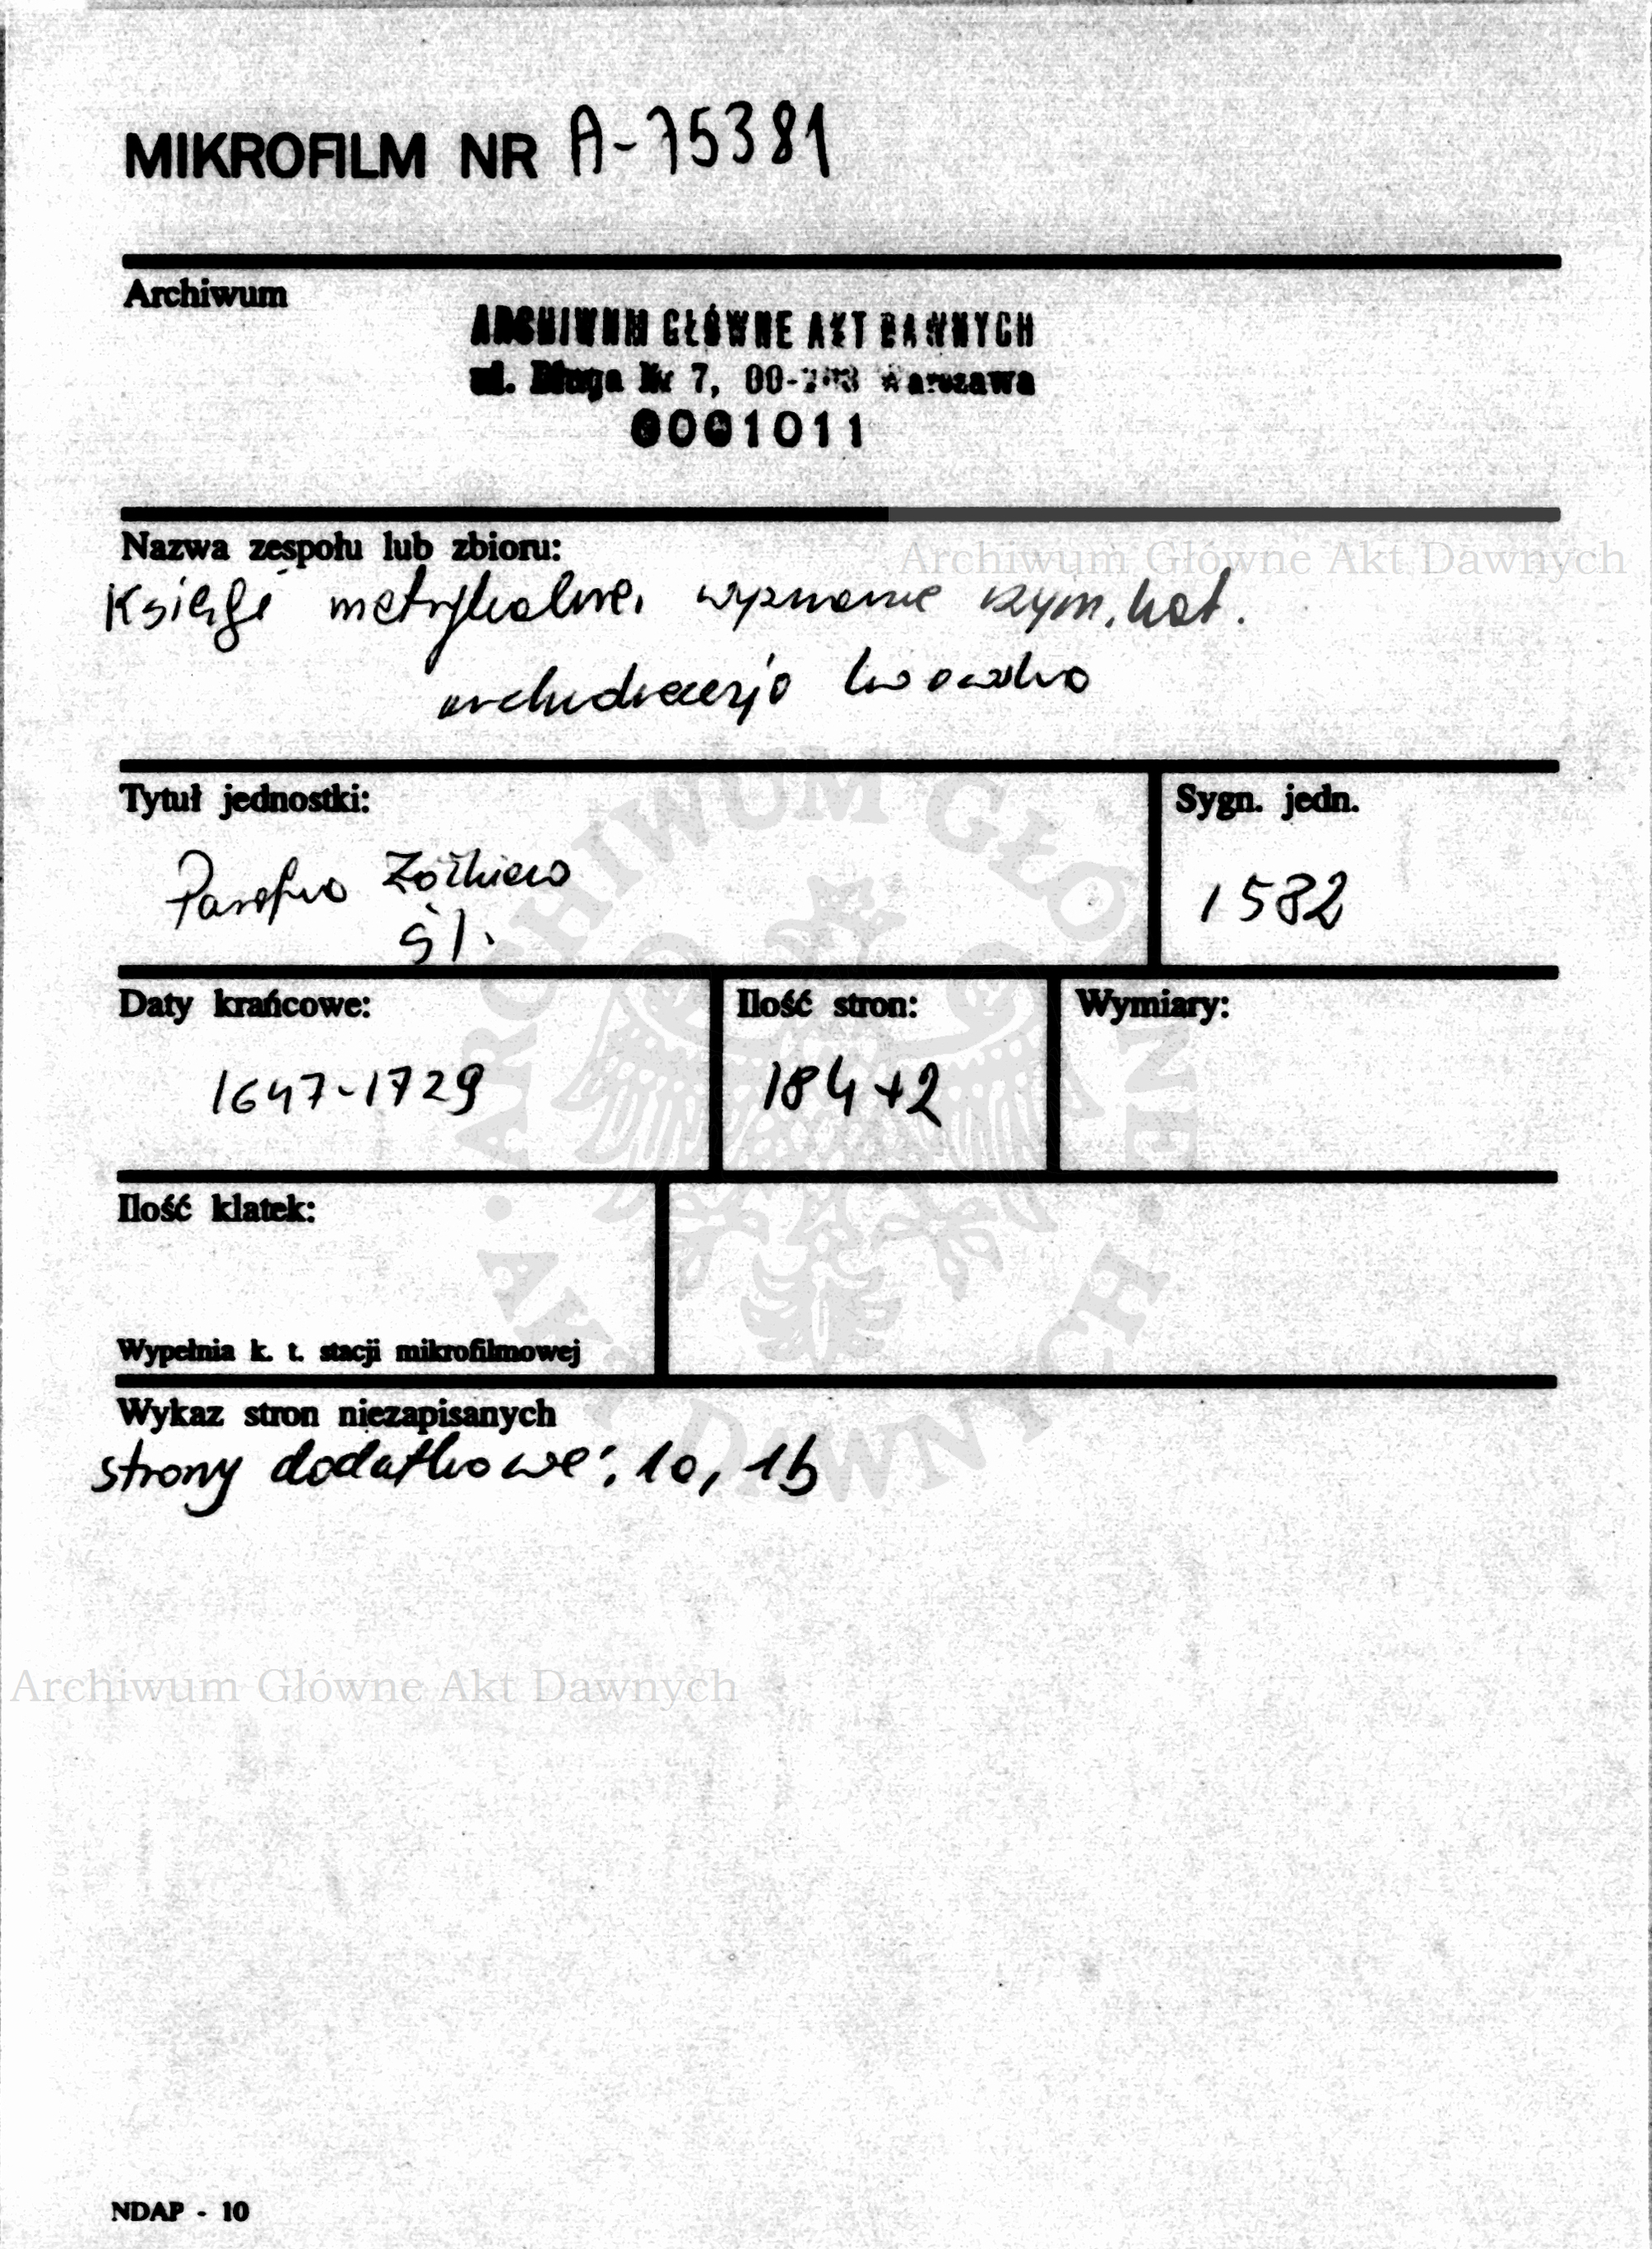 MIKROFILM NR A-75381
Archiwum
ARCHIWUM GŁÓWNE AKT DAWNYCH
ul. Długa Nr 7, 00-263 Warszawa
0001011
Nazwa zespołu lub zbioru:
Archiwum Główne Akt Dawnych
Księgi metrykalne, wyznanie rzym. kat.
archidiecezja lwowska
Tytuł jednostki:
Sygn. jedn.
Parafia Żółkiew
śl.
1582
Daty krańcowe:
Ilość stron:
Wymiary:
1647-1729
184+2
Ilość klatek:
Wypełnia k. t. stacji mikrofilmowej
Wykaz stron niezapisanych
strony dodatkowe: 1a, 1b
ARCHIWUM GŁÓWNE AKT DAWNYCH
Archiwum Główne Akt Dawnych
NDAP - 10